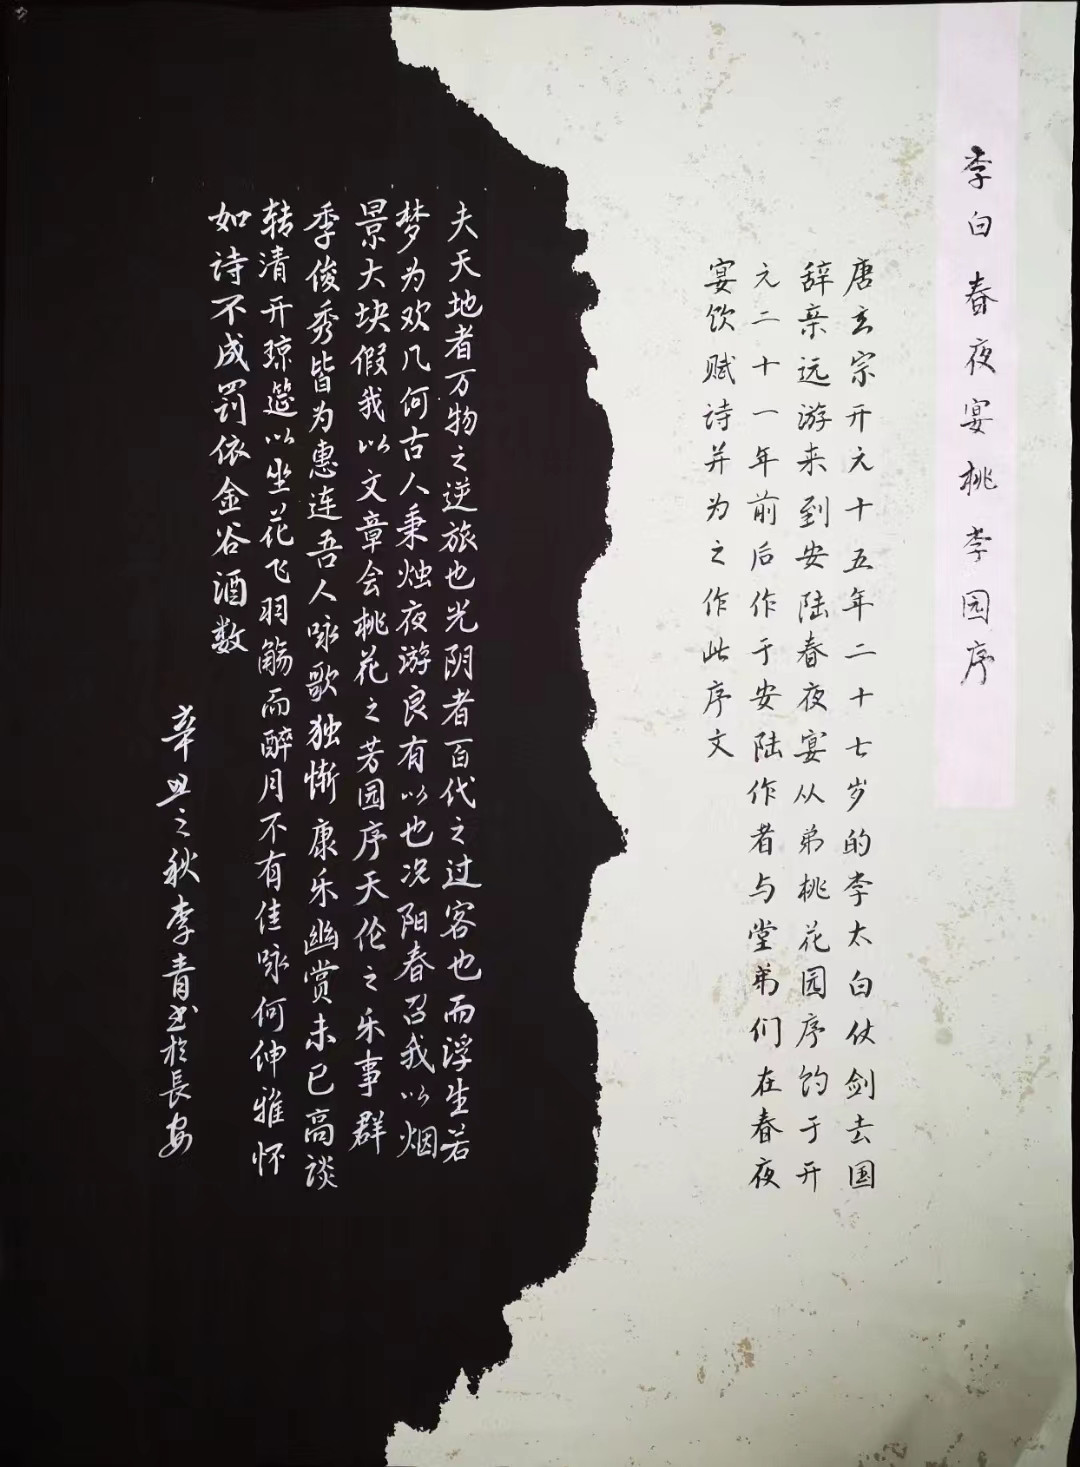 李白春夜宴桃李园序
唐玄宗开元十五年二十七岁的李太白仗剑去国
辞亲远游来到安陆春夜宴从弟桃花园序约于开
元二十一年前后作于安陆作者与堂弟们在春夜
宴饮赋诗并为之作此序文
夫天地者万物之逆旅也光阴者百代之过客也而浮生若
梦为欢几何古人秉烛夜游良有以也况阳春召我以烟
景大块假我以文章会桃花之芳园序天伦之乐事群
季俊秀皆为惠连吾人咏歌独惭康乐幽赏未已高谈
转清开琼筵以坐花飞羽觞而醉月不有佳咏何伸雅怀
如诗不成罚依金谷酒数
辛丑之秋李青书於長安